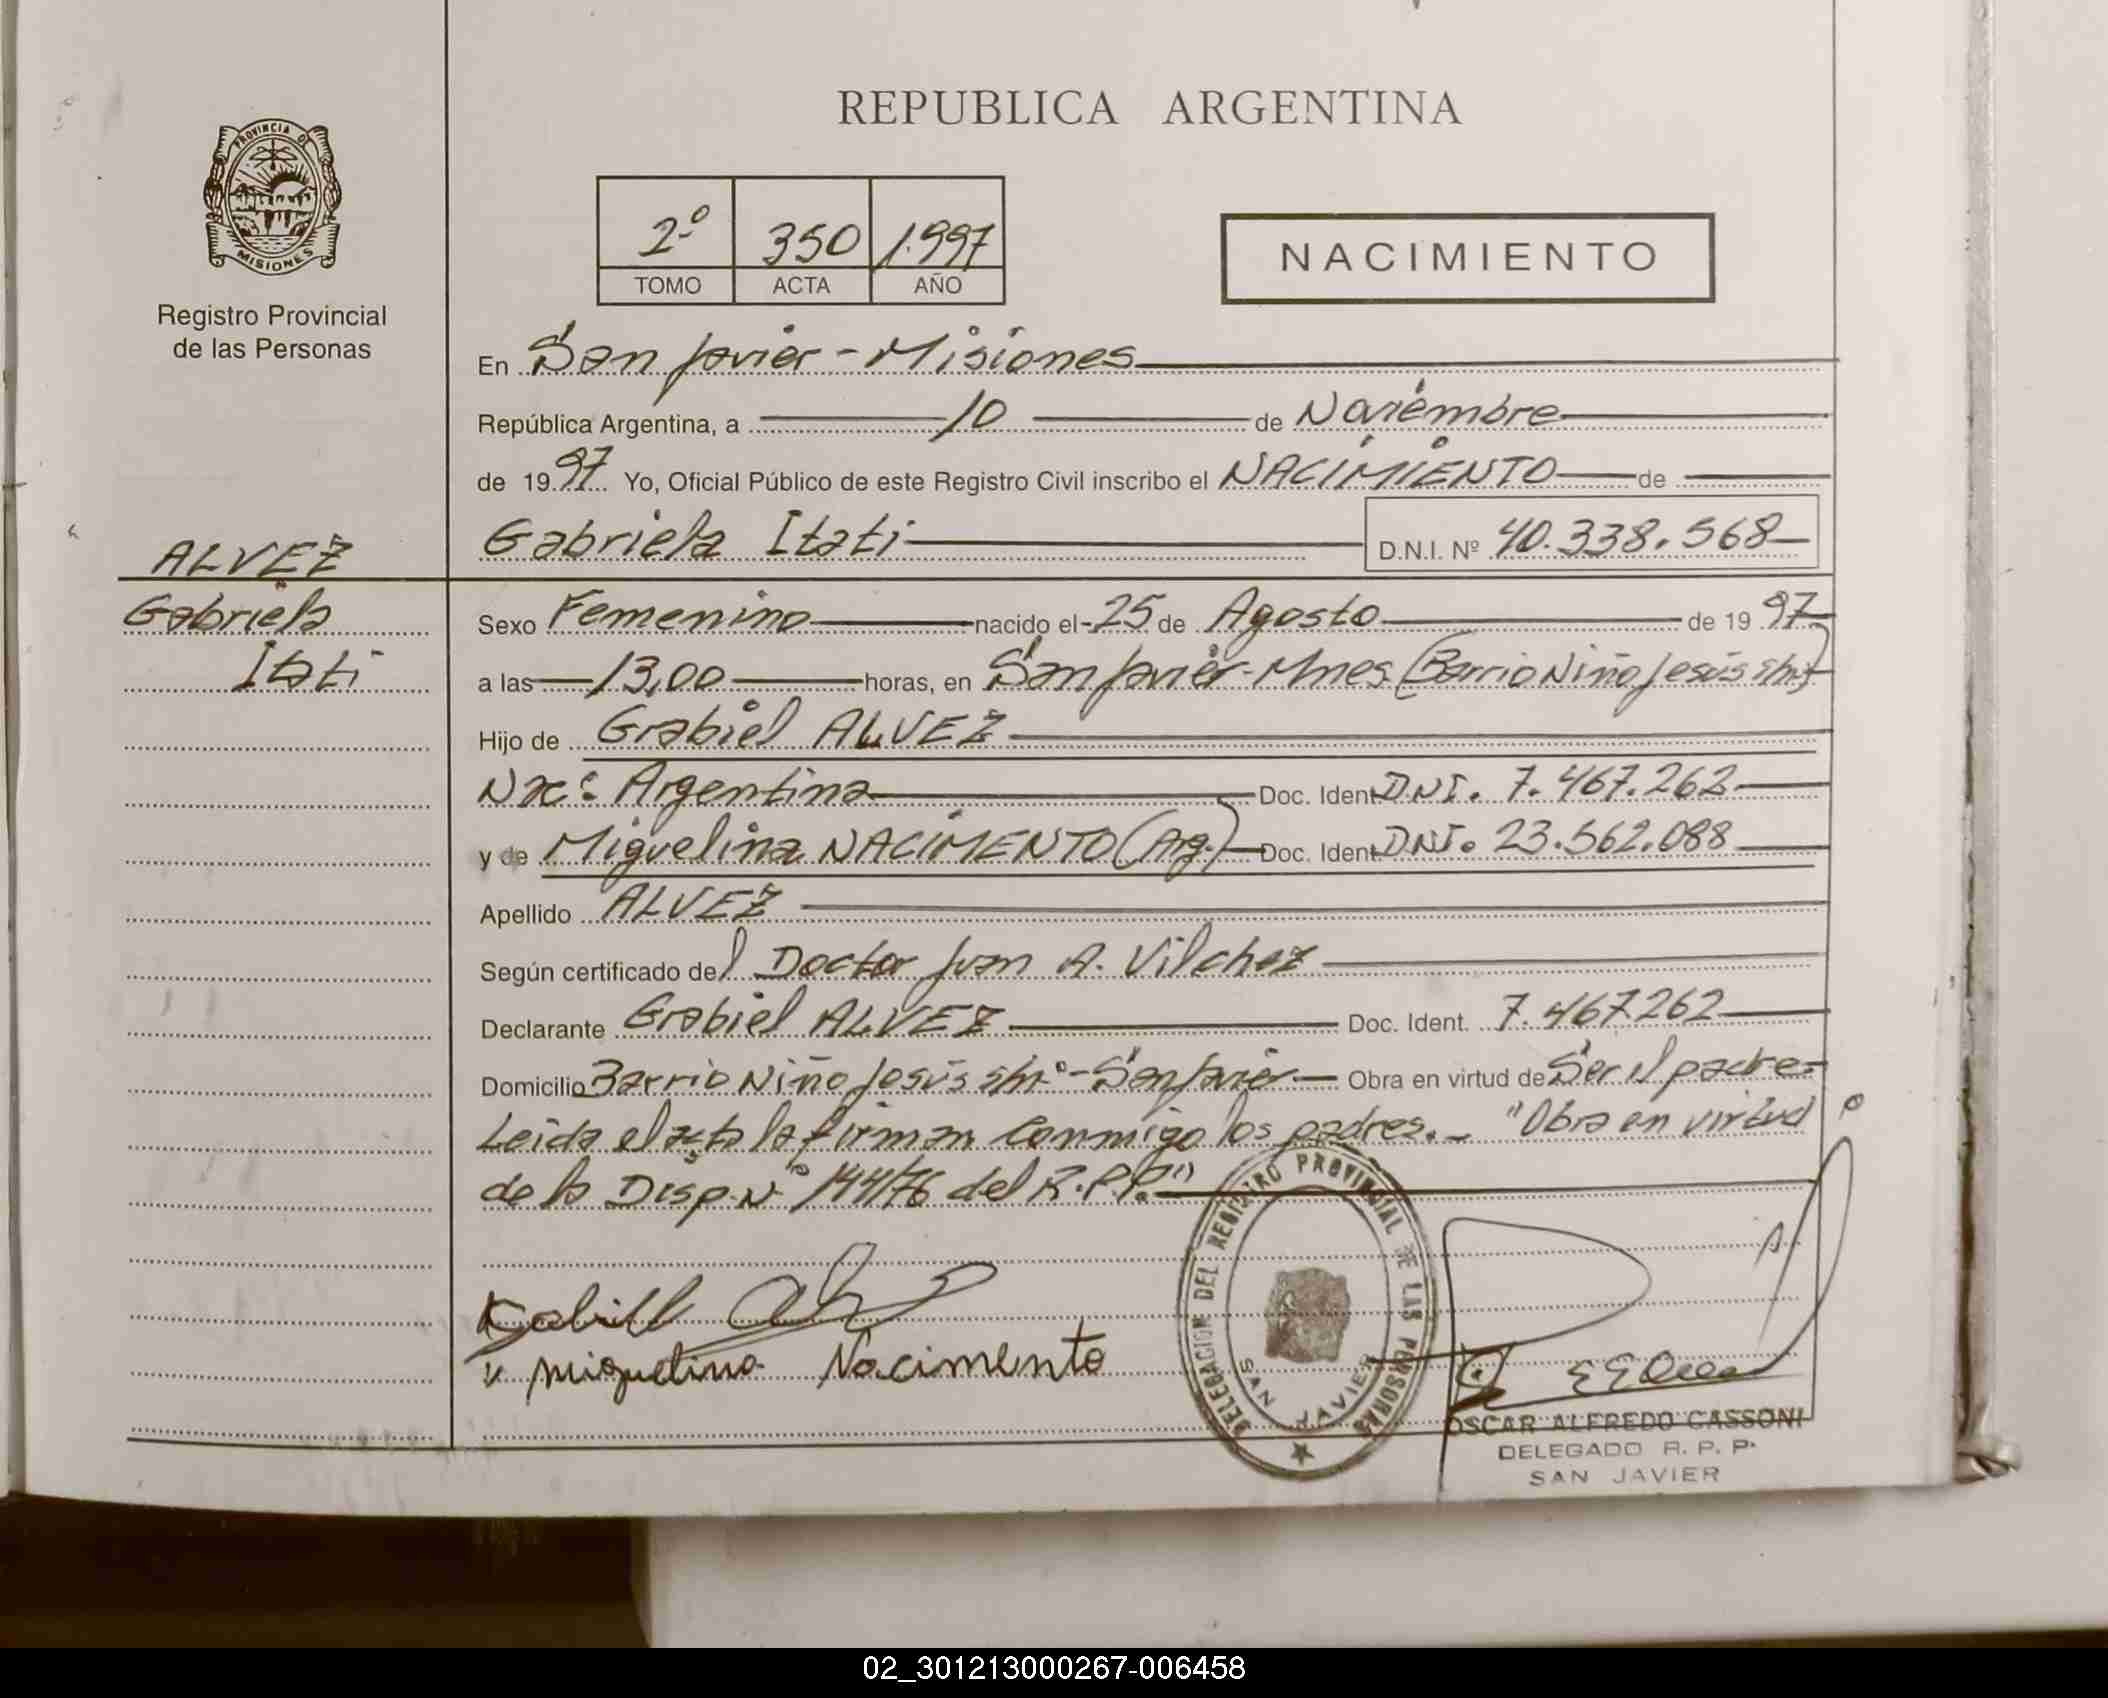 REPUBLICA ARGENTINA
PROVINCIA DE
MISIONES
Registro Provincial
de las Personas
2º 350 1.997
TOMO ACTA AÑO
NACIMIENTO
En San Javier - Misiones
República Argentina, a 10 de Noviembre
de 1997 Yo, Oficial Público de este Registro Civil inscribo el NACIMIENTO de
Gabriela Itati D.N.I. Nº 40.338.568
ALVEZ
Gabriela
Itati
Sexo Femenino nacido el 25 de Agosto de 1997
a las 13,00 horas, en San Javier - Mnes (Barrio Niño Jesús s/n)
Hijo de Grabiel ALVEZ
Nac: Argentina Doc. Ident DNI. 7.467.262
y de Miguelina NACIMENTO (Arg.) Doc. Ident DNI. 23.562.088
Apellido ALVEZ
Según certificado del Doctor Juan A. Vilchez
Declarante Grabiel ALVEZ Doc. Ident. 7.467.262
Domicilio Barrio Niño Jesús s/nº - San Javier Obra en virtud de Ser el padre.
Leída el acta la firman conmigo los padres. - "Obra en virtud
de la Disp. Nº 144/76 del R.P.P."
Miguelina Nacimento
DELEGACION DEL REGISTRO PROVINCIAL DE LAS PERSONAS
SAN JAVIER
OSCAR ALFREDO CASSONI
DELEGADO R. P. P.
SAN JAVIER
02_301213000267-006458